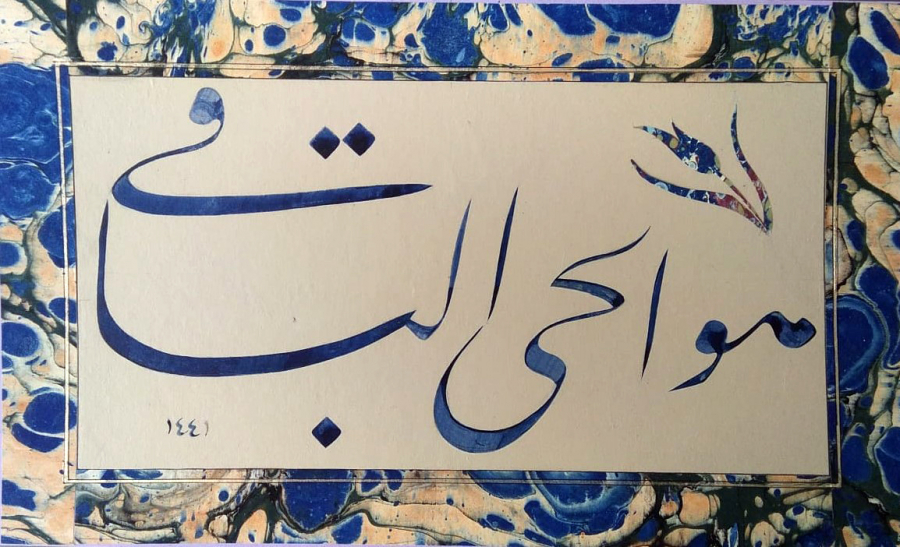 هو الحى الباقى
١٤٤١